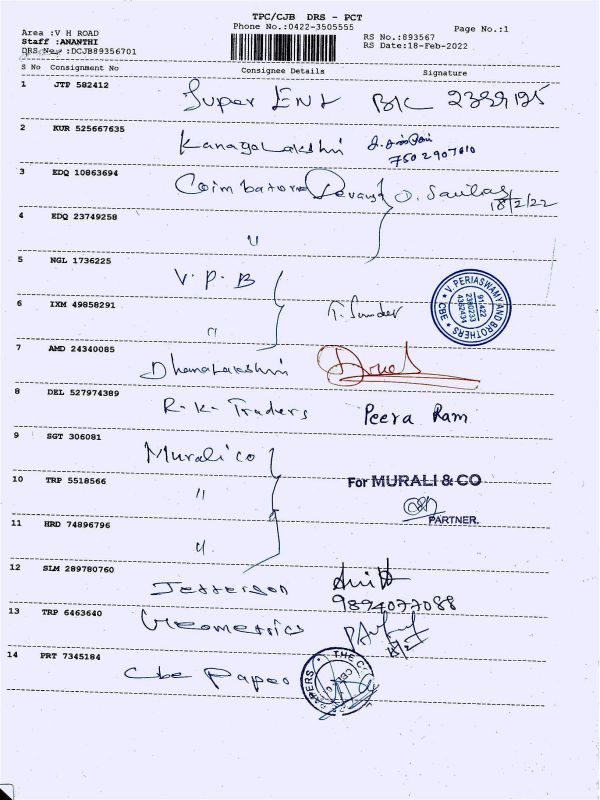 TPC/CJB DRS - PCT
Area :V H ROAD
Phone No.:0422-3505555
Page No.:1
Staff :ANANTHI
RS No.:893567
DRS No. :DCJB89356701
RS Date:18-Feb-2022
S No Consignment No Consignee Details Signature
1 JTP 582412 Super ENT B/C
2 KUR 525667635 KanagaLakshmi
7502907610
3 EDQ 10863694 Coimbatore
18/2/22
4 EDQ 23749258 "
5 NGL 1736225 V.P.B
V. PERIASWAMY AND BROTHERS
* CBE *
91/422
2380233
4382434
6 IXM 49858291 " T. Sunder
7 AMD 24340085 DhanaLakshmi
8 DEL 527974389 R.K. Traders Peera Ram
9 SGT 306081 Murali co
10 TRP 5518566 " For MURALI & CO
PARTNER.
11 HRD 74896796 "
12 SLM 289780760 Jefferson
9894077088
13 TRP 6463640 Geometrics
14 PRT 7345184 Cbe Papers